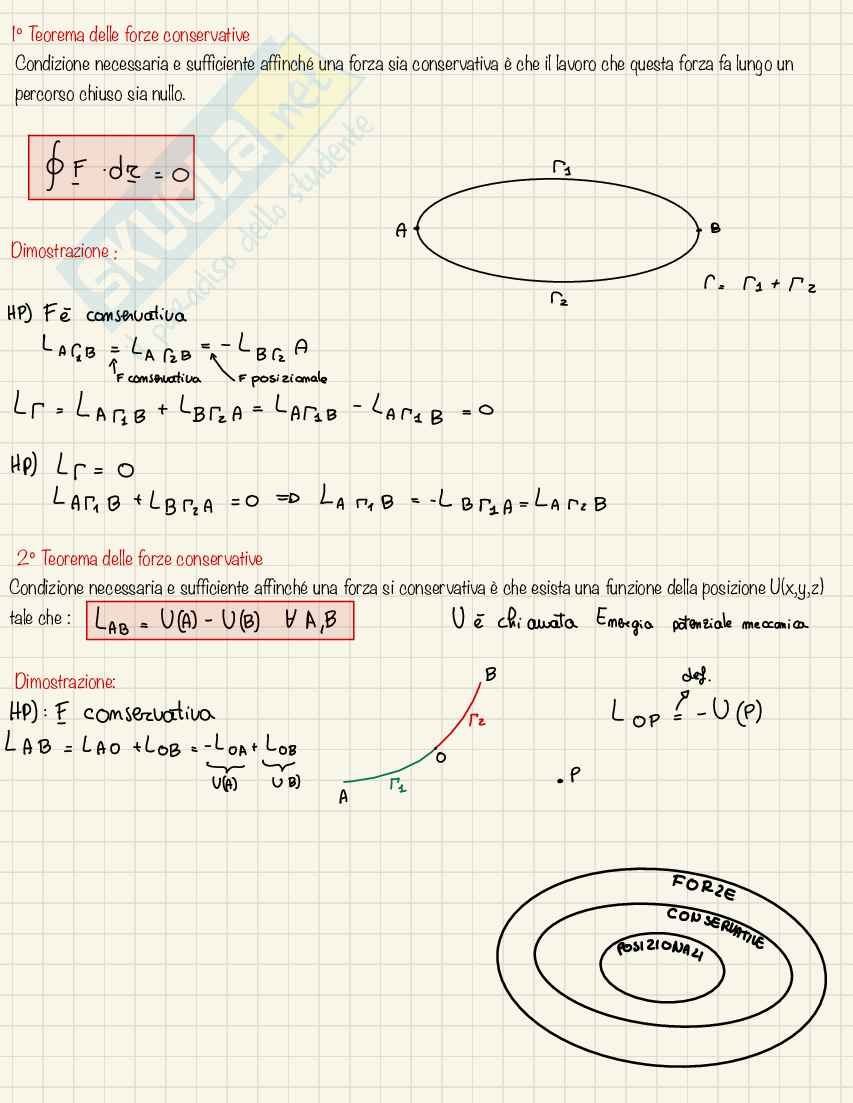 1° Teorema delle forze conservative
Condizione necessaria e sufficiente affinché una forza sia conservativa è che il lavoro che questa forza fa lungo un
percorso chiuso sia nullo.
SKUOLA.net
il paradiso dello studente
∮ F · dr = 0
Γ1
A
B
Γ2
Γ = Γ1 + Γ2
Dimostrazione :
HP) F è conservativa
L AΓ1B = L AΓ2B = - L BΓ2A
F conservativa
F posizionale
LΓ = L AΓ1B + L BΓ2A = L AΓ1B - L AΓ1B = 0
HP) LΓ = 0
L AΓ1B + L BΓ2A = 0 => L AΓ1B = -L BΓ1A = L AΓ2B
2° Teorema delle forze conservative
Condizione necessaria e sufficiente affinché una forza si conservativa è che esista una funzione della posizione U(x,y,z)
tale che : L AB = U(A) - U(B) ∀ A,B
U è chiamata Energia potenziale meccanica
Dimostrazione:
HP): F conservativa
L AB = L AO + L OB = -L OA + L OB
U(A) U B)
B
Γ2
O
Γ1
A
def.
L OP = - U(P)
P
FORZE
CONSERVATIVE
POSIZIONALI